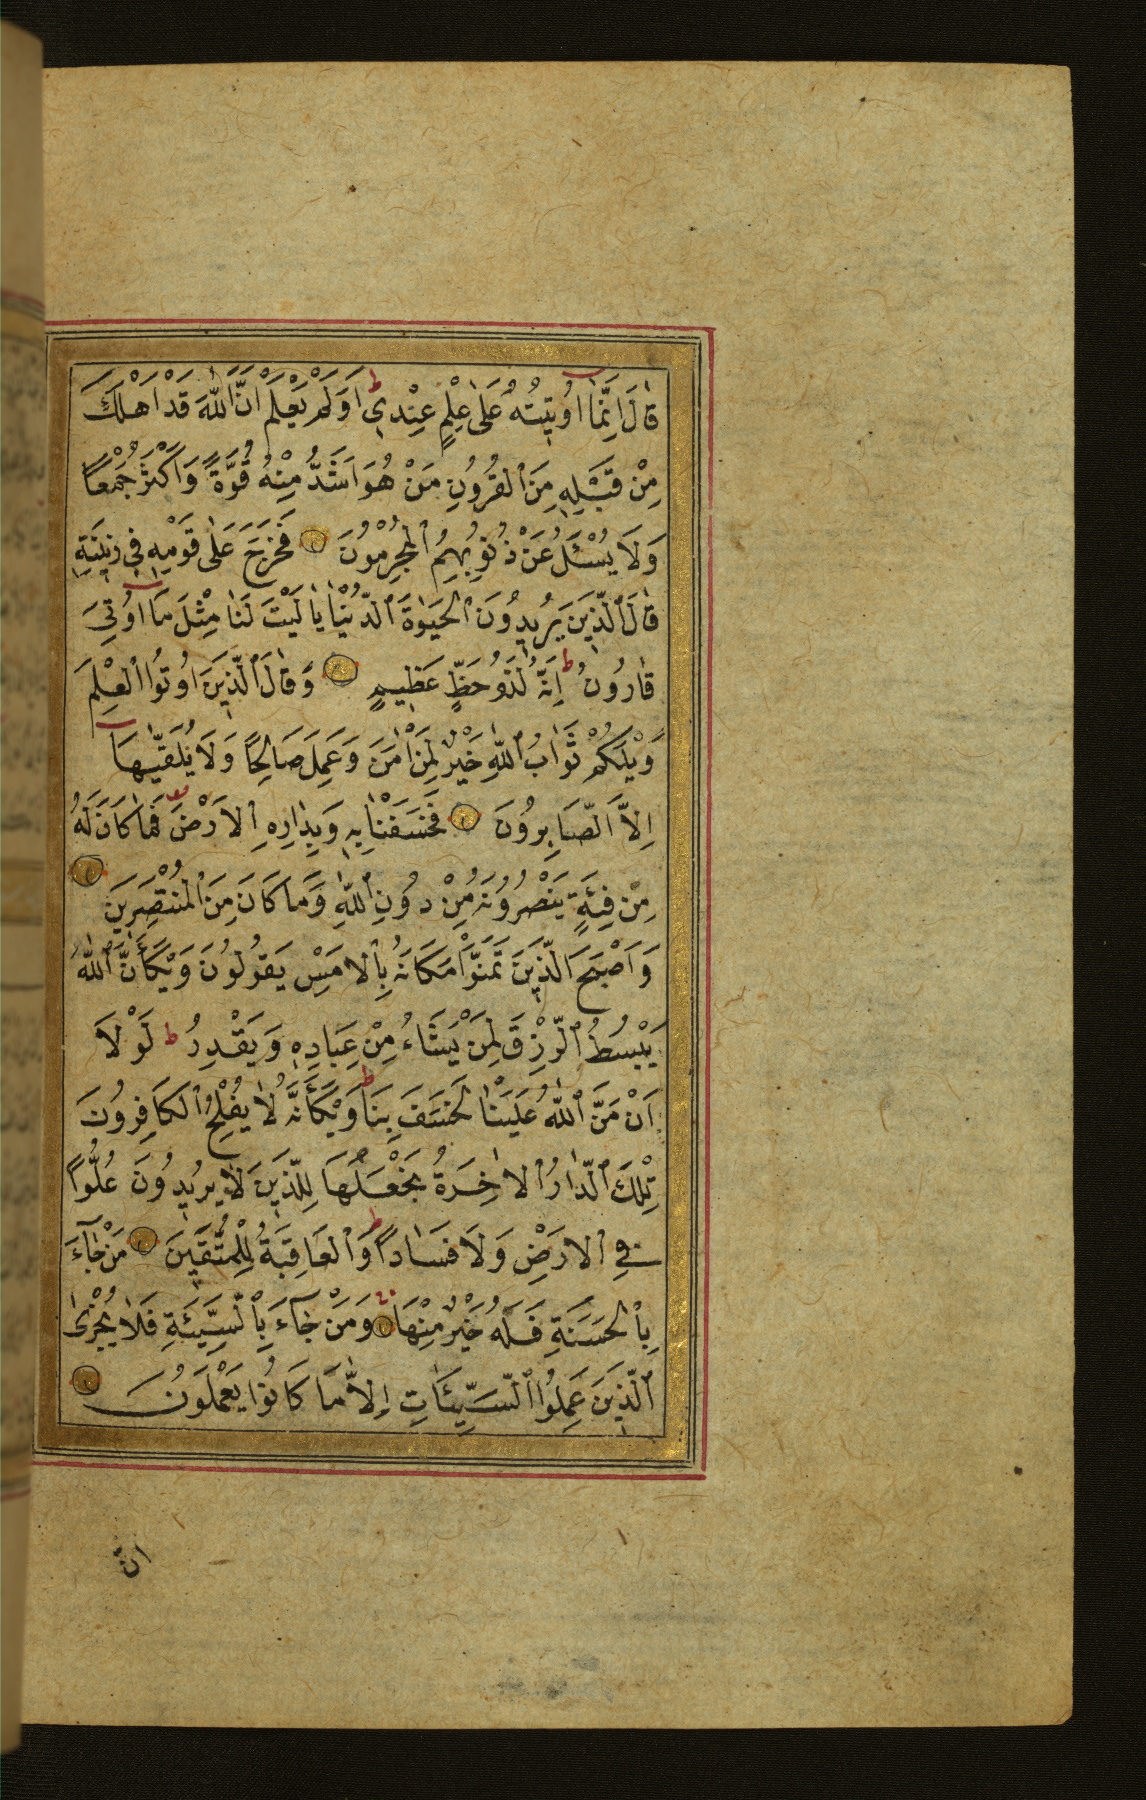 قَالَ اِنَّمَا اُوتِيتُهُ عَلٰى عِلْمٍ عِنْدِي ط اَوَلَمْ يَعْلَمْ اَنَّ اللّٰهَ قَدْ اَهْلَكَ
مِنْ قَبْلِهِ مِنَ الْقُرُونِ مَنْ هُوَ اَشَدُّ مِنْهُ قُوَّةً وَاَكْثَرُ جَمْعًا
وَلَا يُسْئَلُ عَنْ ذُنُوبِهِمُ الْمُجْرِمُونَ فَخَرَجَ عَلٰى قَوْمِهِ فِي زِينَتِهِ
قَالَ الَّذِينَ يُرِيدُونَ الْحَيٰوةَ الدُّنْيَا يَا لَيْتَ لَنَا مِثْلَ مَا اُوتِيَ
قَارُونُ ط اِنَّهُ لَذُو حَظٍّ عَظِيمٍ وَقَالَ الَّذِينَ اُوتُوا الْعِلْمَ
وَيْلَكُمْ ثَوَابُ اللّٰهِ خَيْرٌ لِمَنْ اٰمَنَ وَعَمِلَ صَالِحًا وَلَا يُلَقّٰيهَا
اِلَّا الصَّابِرُونَ فَخَسَفْنَا بِهِ وَبِدَارِهِ الْاَرْضَ فَمَا كَانَ لَهُ
مِنْ فِئَةٍ يَنْصُرُونَهُ مِنْ دُونِ اللّٰهِ وَمَا كَانَ مِنَ الْمُنْتَصِرِينَ
وَاَصْبَحَ الَّذِينَ تَمَنَّوْا مَكَانَهُ بِالْاَمْسِ يَقُولُونَ وَيْكَاَنَّ اللّٰهَ
يَبْسُطُ الرِّزْقَ لِمَنْ يَشَاءُ مِنْ عِبَادِهِ وَيَقْدِرُ ط لَوْلَا
اَنْ مَنَّ اللّٰهُ عَلَيْنَا لَخَسَفَ بِنَا ط وَيْكَاَنَّهُ لَا يُفْلِحُ الْكَافِرُونَ
تِلْكَ الدَّارُ الْاٰخِرَةُ نَجْعَلُهَا لِلَّذِينَ لَا يُرِيدُونَ عُلُوًّا
فِي الْاَرْضِ وَلَا فَسَادًا ط وَالْعَاقِبَةُ لِلْمُتَّقِينَ مَنْ جَاءَ
بِالْحَسَنَةِ فَلَهُ خَيْرٌ مِنْهَا وَمَنْ جَاءَ بِالسَّيِّئَةِ فَلَا يُجْزَى
الَّذِينَ عَمِلُوا السَّيِّئَاتِ اِلَّا مَا كَانُوا يَعْمَلُونَ
ان